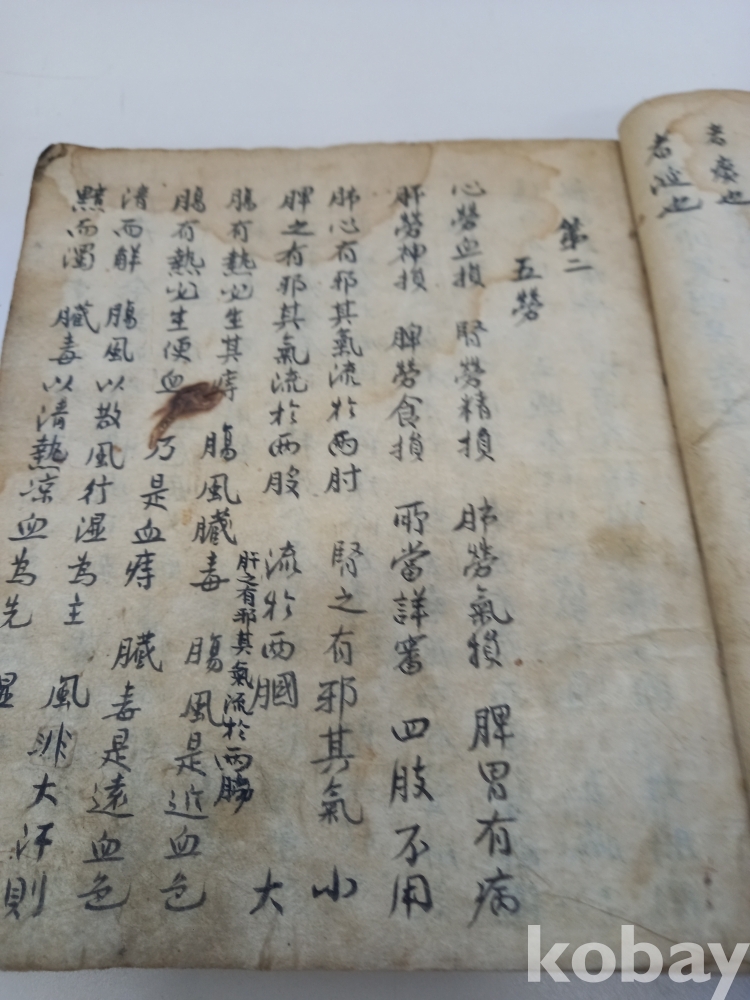 者痰也
者  也
第二
五勞
心勞血損 腎勞精損 肺勞氣損 脾胃有病
肝勞神損 脾勞食損 所當詳審 四肢不用
肺心有邪其氣流於兩肘 腎之有邪其氣 小
脾之有邪其氣流於兩股 流於兩膕 大
肝之有邪其氣流於兩
腸有熱必生其痔 腸風臟毒 腸風是近血色
腸有熱必生便血 乃是血痔 臟毒是遠血色
清而鮮 腸風以散風行湿為主 風非大汗則
黯而濁 臟毒以清熱凉血為先 湿
kobay